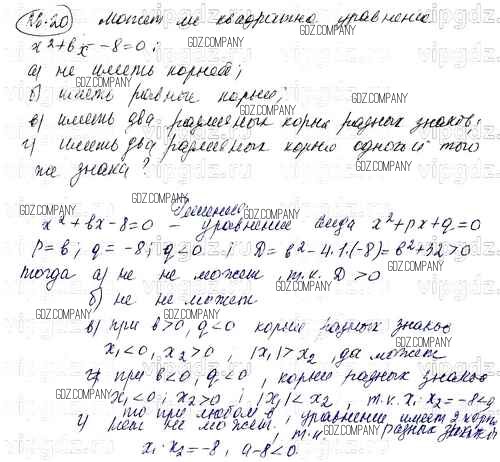 26.20 Может ли квадратное уравнение
x²+bx-8=0;
а) не иметь корней;
б) иметь равные корни;
в) иметь два различных корня разных знаков;
г) иметь два различных корня одного и того
же знака?
Решение
x²+bx-8=0 - уравнение вида x²+px+q=0
p=b; q=-8; q<0; D=b²-4·1·(-8)=b²+32>0
тогда а) не не может, т.к. D>0
б) не не может
в) при b>0, q<0 корни разных знаков
x₁<0, x₂>0, |x₁|>x₂, да может
г) при b<0, q<0, корни разных знаков
x₁<0; x₂>0, |x₁|<x₂, т.к. x₁·x₂=-8<0
то при любом b, уравнение имеет 2 корня
г) нет не может. т.к. разных знаков
x₁·x₂=-8, а -8<0.
GDZ.COMPANY
vipgdz.ru